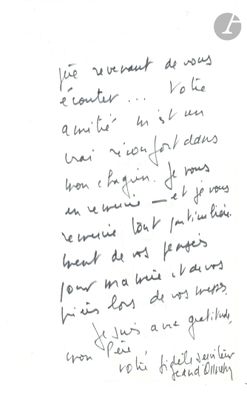 revenant de vous
écouter... Votre
amitié m'est un
vrai réconfort dans
mon chagrin. Je vous
en remercie – et je vous
remercie tout particulière-
ment de vos pensées
pour ma mère et de vos
prières lors de vos messes.
Je suis avec gratitude,
mon Père
votre fidèle serviteur